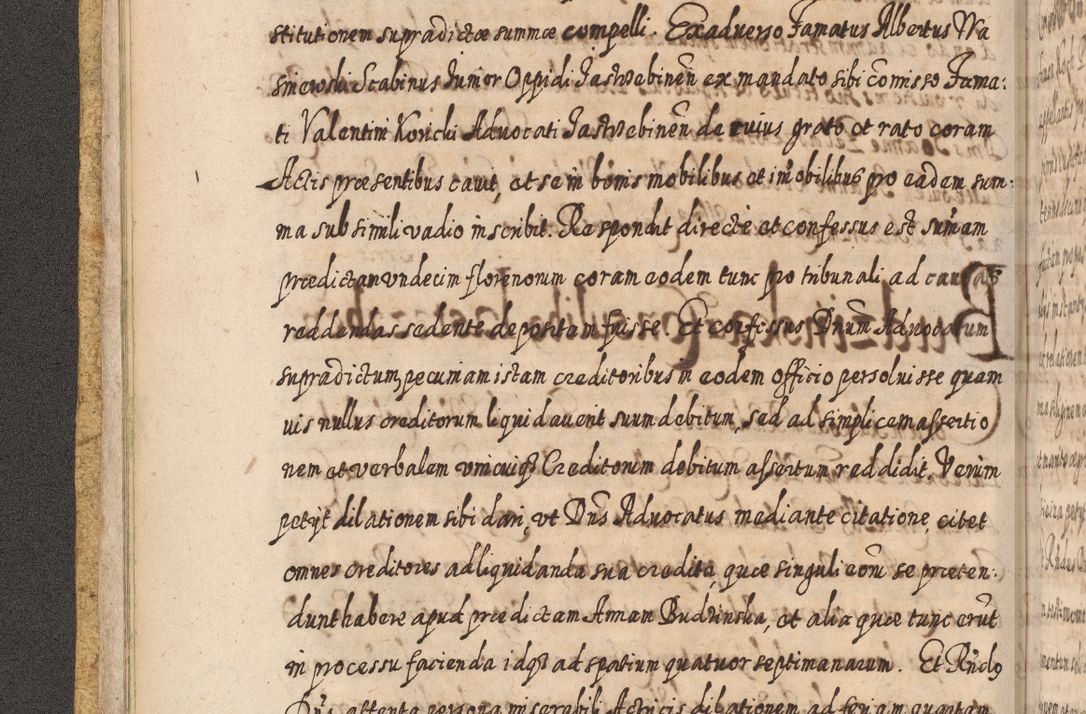 stitutionem supradictæ summæ compelli. Exadverso Famatus Albertus Wa
sniewski Scabinus Junior Oppidi Jastrzebinēn ex mandato sibi cōmisso Fama:
ti Valentini Koricki Advocati Jastrzebinēn de cuius grato et rato coram
Actis præsentibus cavit, et se in bonis mobilibus et im̄obilibus pro eadem sum:
ma sub simili vadio inscribit. Respondit directè et confessus est sum̄am
prædictam undecim florenorum coram eodem tunc pro tribunali ad causas
reddendas sedente depositam fuisse. Et confessus Dnum Advocatum
supradictum, pecuniam istam creditoribus in eodem officio persolvisse quam
vis nullus creditorum liquidaverit suum debitum, sed ad simplicem assertio
nem et verbalem unicuiq3 Creditorum debitum assertum reddidit. Verùm
petijt dilationem sibi dari, ut Dn̄s Advocatus mediante citatione, citet
omnes creditores ad liquidanda sua credita, quæ singuli eorū se præten:
dunt habere apud prædictam Annam Budzinska, et alia quæ tunc erūt
in processu facienda idq3 ad spatium quatuor septimanarum. Et Rn̄dus
Dn̄s attenta persona miserabili Actricis dilationem ad feriam quartam